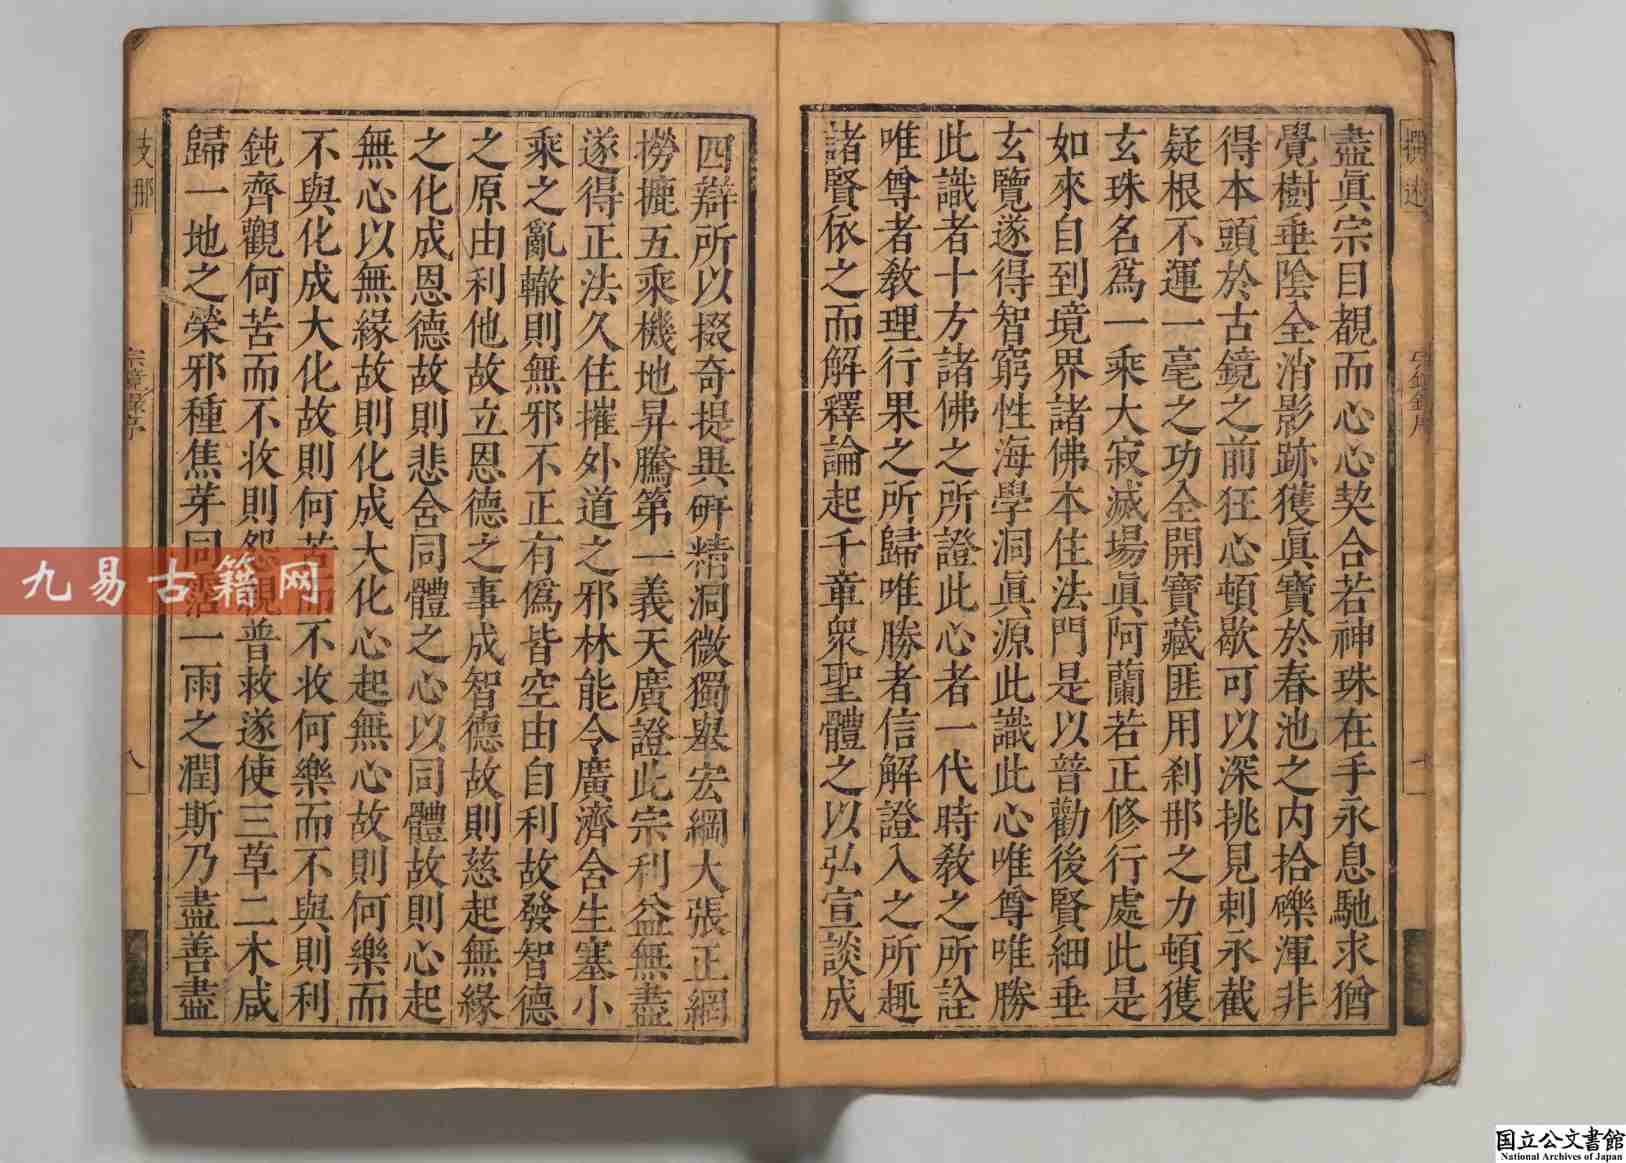 盡眞宗目覩而心心契合若神珠在手永息馳求猶
覺樹垂陰全消影跡獲眞寶於春池之内拾礫渾非
得本頭於古鏡之前狂心頓歇可以深挑見刺永截
疑根不運一毫之功全開寶藏匪用刹那之力頓獲
玄珠名爲一乘大寂滅場眞阿蘭若正修行處此是
如來自到境界諸佛本住法門是以普勸後賢細垂
玄覽遂得智窮性海學洞眞源此識此心唯尊唯勝
此識者十方諸佛之所證此心者一代時敎之所詮
唯尊者敎理行果之所歸唯勝者信解證入之所趣
諸賢依之而解釋論起千章衆聖體之以弘宣談成
四辯所以掇奇提異研精洞微獨舉宏綱大張正網
撈摝五乘機地昇騰第一義天廣證此宗利益無盡
遂得正法久住摧外道之邪林能令廣濟含生塞小
乘之亂轍則無邪不正有僞皆空由自利故發智德
之原由利他故立恩德之事成智德故則慈起無緣
之化成恩德故則悲含同體之心以同體故則心起
無心以無緣故則化成大化心起無心故則何樂而
不與化成大化故則何苦而不收何樂而不與則利
鈍齊觀何苦而不收則怨親普救遂使三草二木咸
歸一地之榮邪種焦芽同霑一雨之潤斯乃盡善盡
支那
宗鏡錄序
八
九易古籍网
国立公文書館
National Archives of Japan